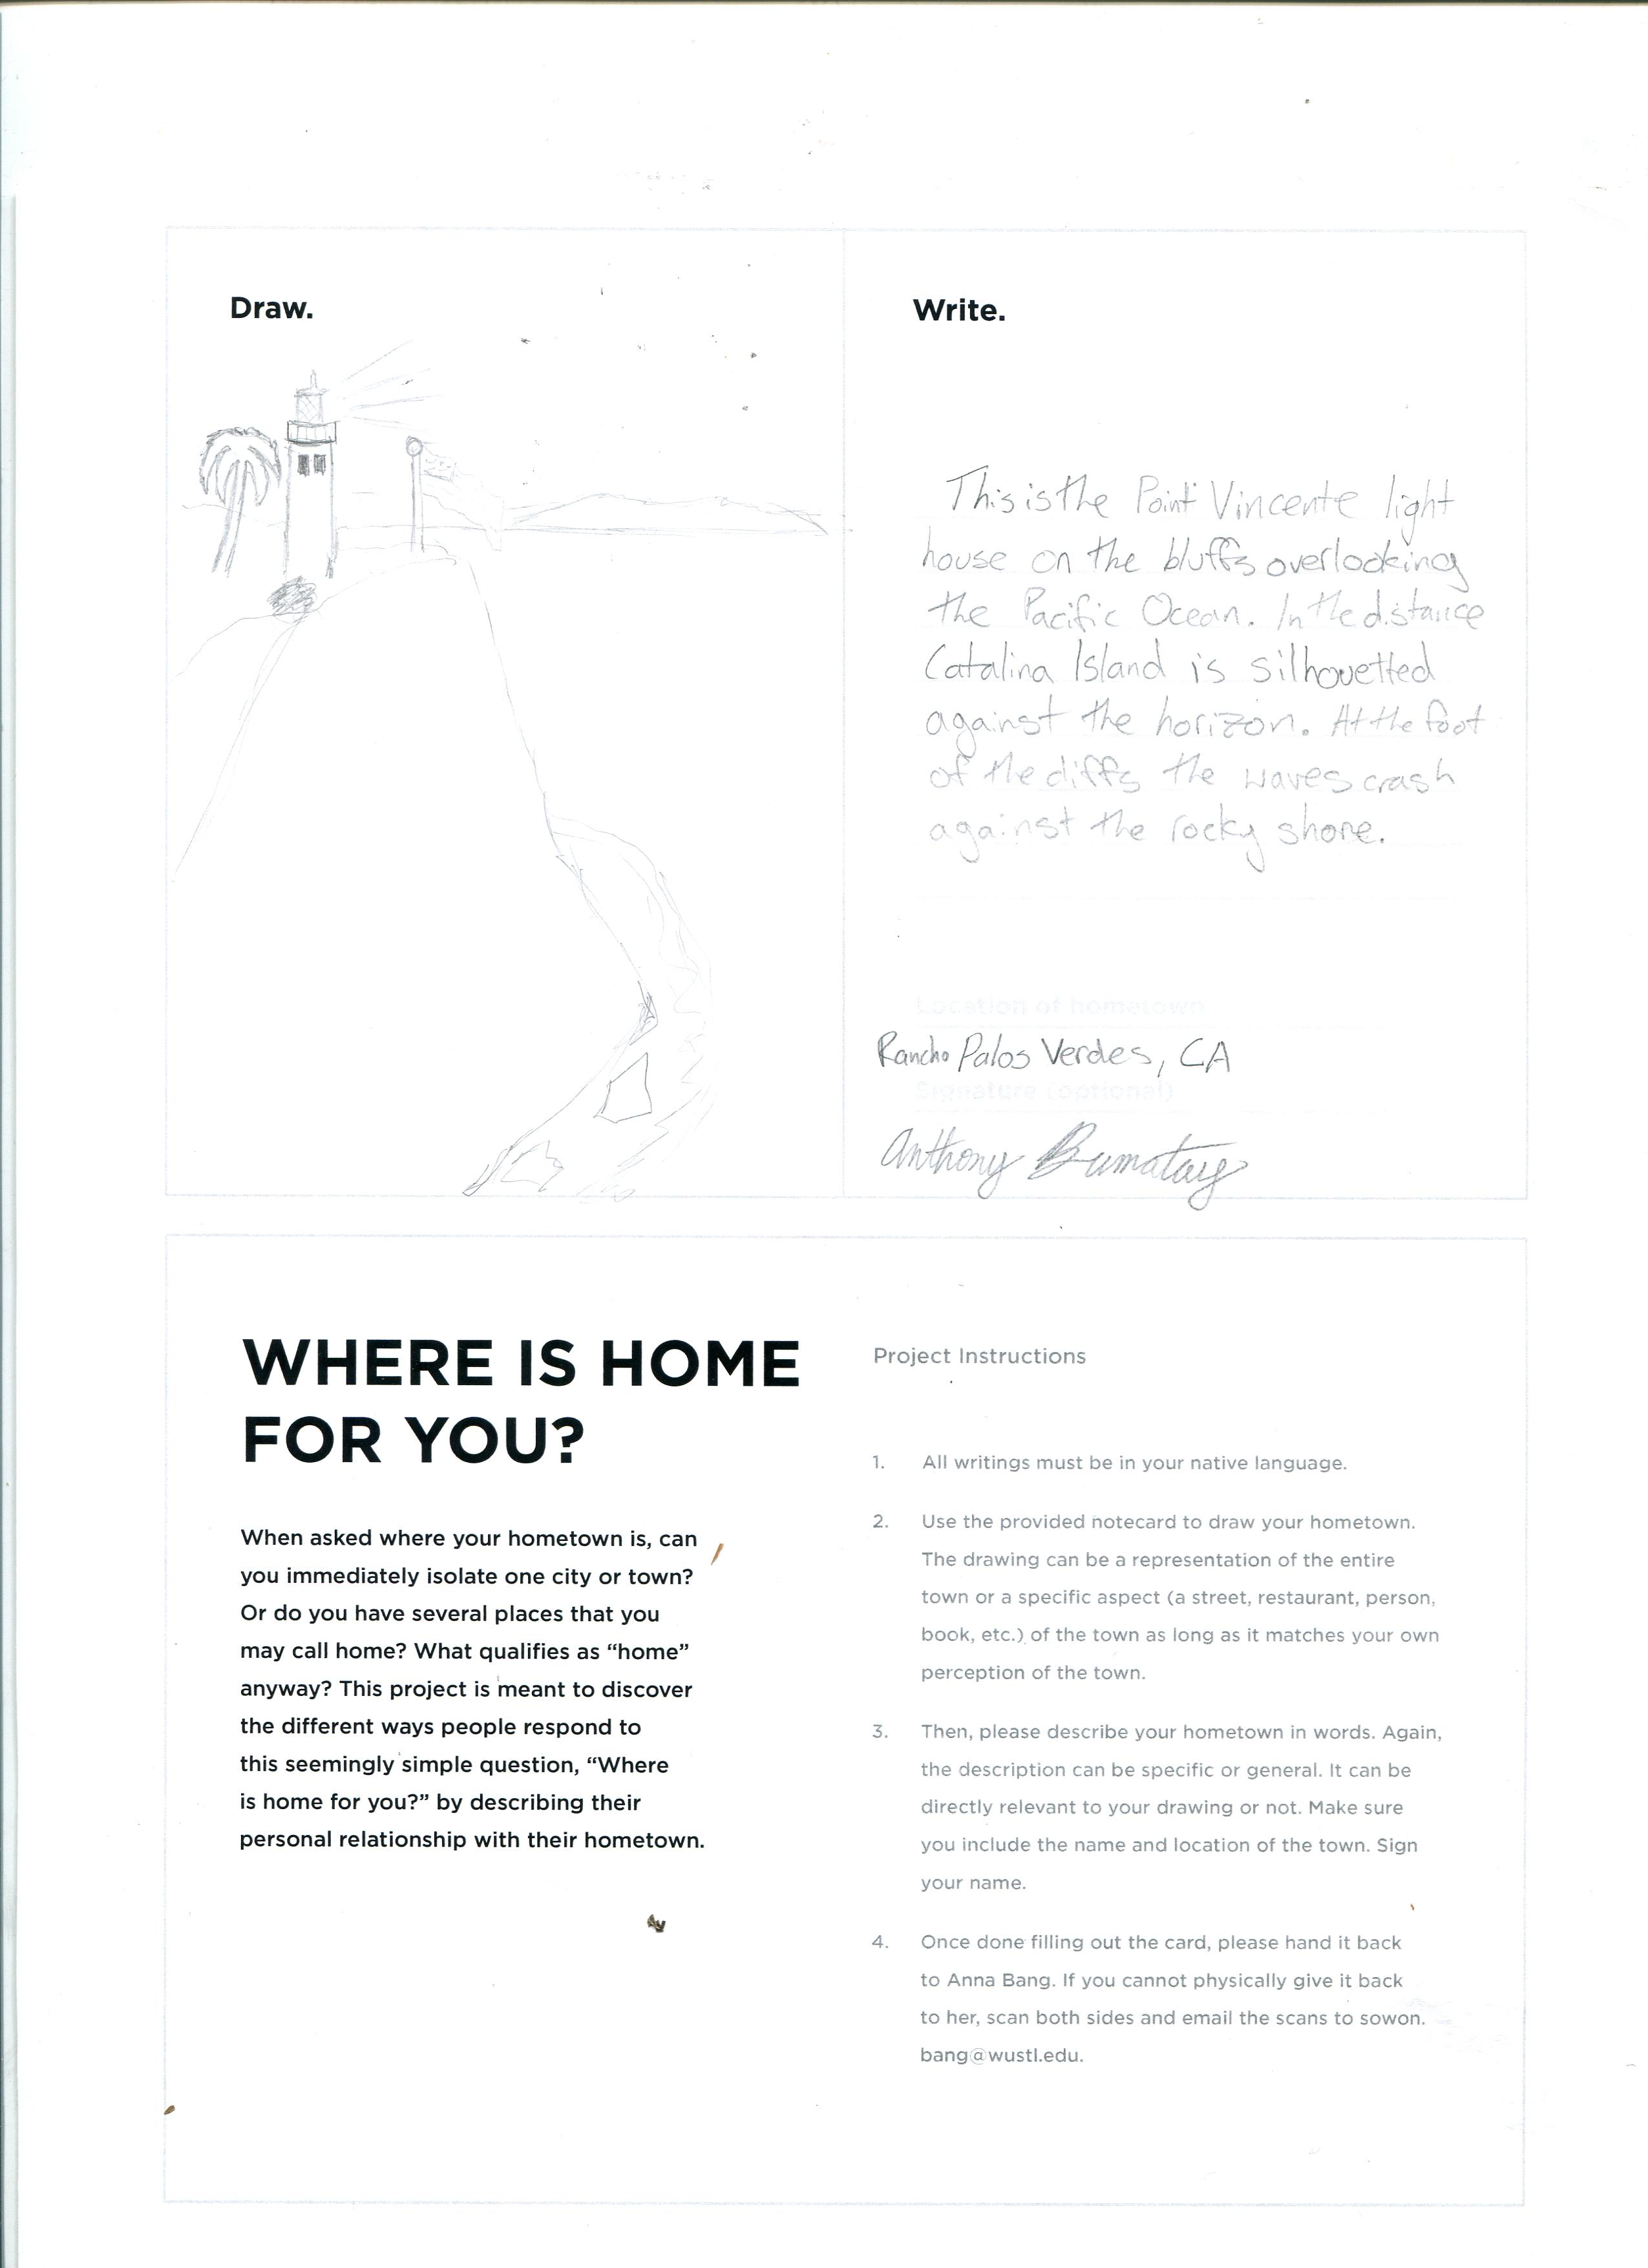 Draw.
Write.
This is the Point Vincente light
house on the bluffs overlooking
the Pacific Ocean. In the distance
Catalina Island is silhouetted
against the horizon. At the foot
of the cliffs the waves crash
against the rocky shore.
Location of hometown
Rancho Palos Verdes, CA
Signature (optional)
Anthony Bumatay
WHERE IS HOME
FOR YOU?
When asked where your hometown is, can
you immediately isolate one city or town?
Or do you have several places that you
may call home? What qualifies as “home”
anyway? This project is meant to discover
the different ways people respond to
this seemingly simple question, “Where
is home for you?” by describing their
personal relationship with their hometown.
Project Instructions
1. All writings must be in your native language.
2. Use the provided notecard to draw your hometown.
The drawing can be a representation of the entire
town or a specific aspect (a street, restaurant, person,
book, etc.) of the town as long as it matches your own
perception of the town.
3. Then, please describe your hometown in words. Again,
the description can be specific or general. It can be
directly relevant to your drawing or not. Make sure
you include the name and location of the town. Sign
your name.
4. Once done filling out the card, please hand it back
to Anna Bang. If you cannot physically give it back
to her, scan both sides and email the scans to sowon.
bang@wustl.edu.